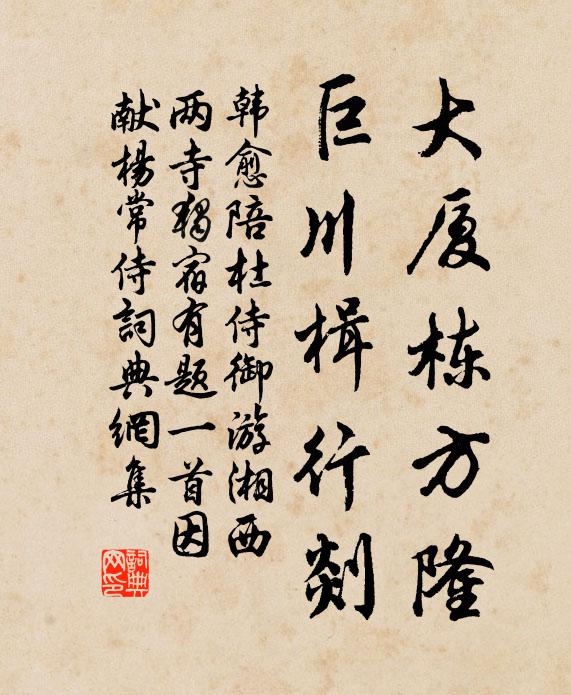 大厦栋方隆
巨川楫行剡
韩愈陪杜侍御游湘西
两寺独宿有题一首因
献楊常侍詞典網集
詞典網印